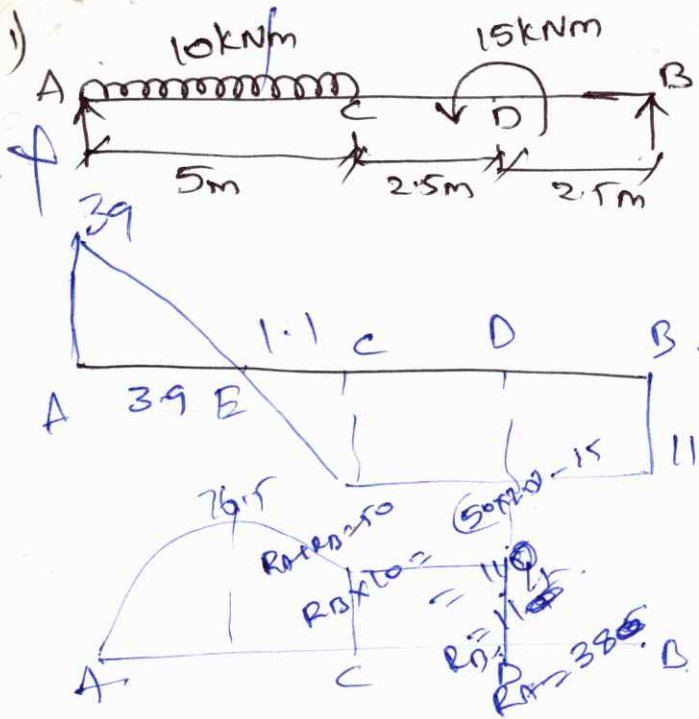 1)
10kNm 15kNm
A C D B
5m 2.5m 2.5m
39
1.1 C D B
A 3.9 E 11
76.5
RA+RB=50
(50×2.5)-15
RB×10=
A C D B